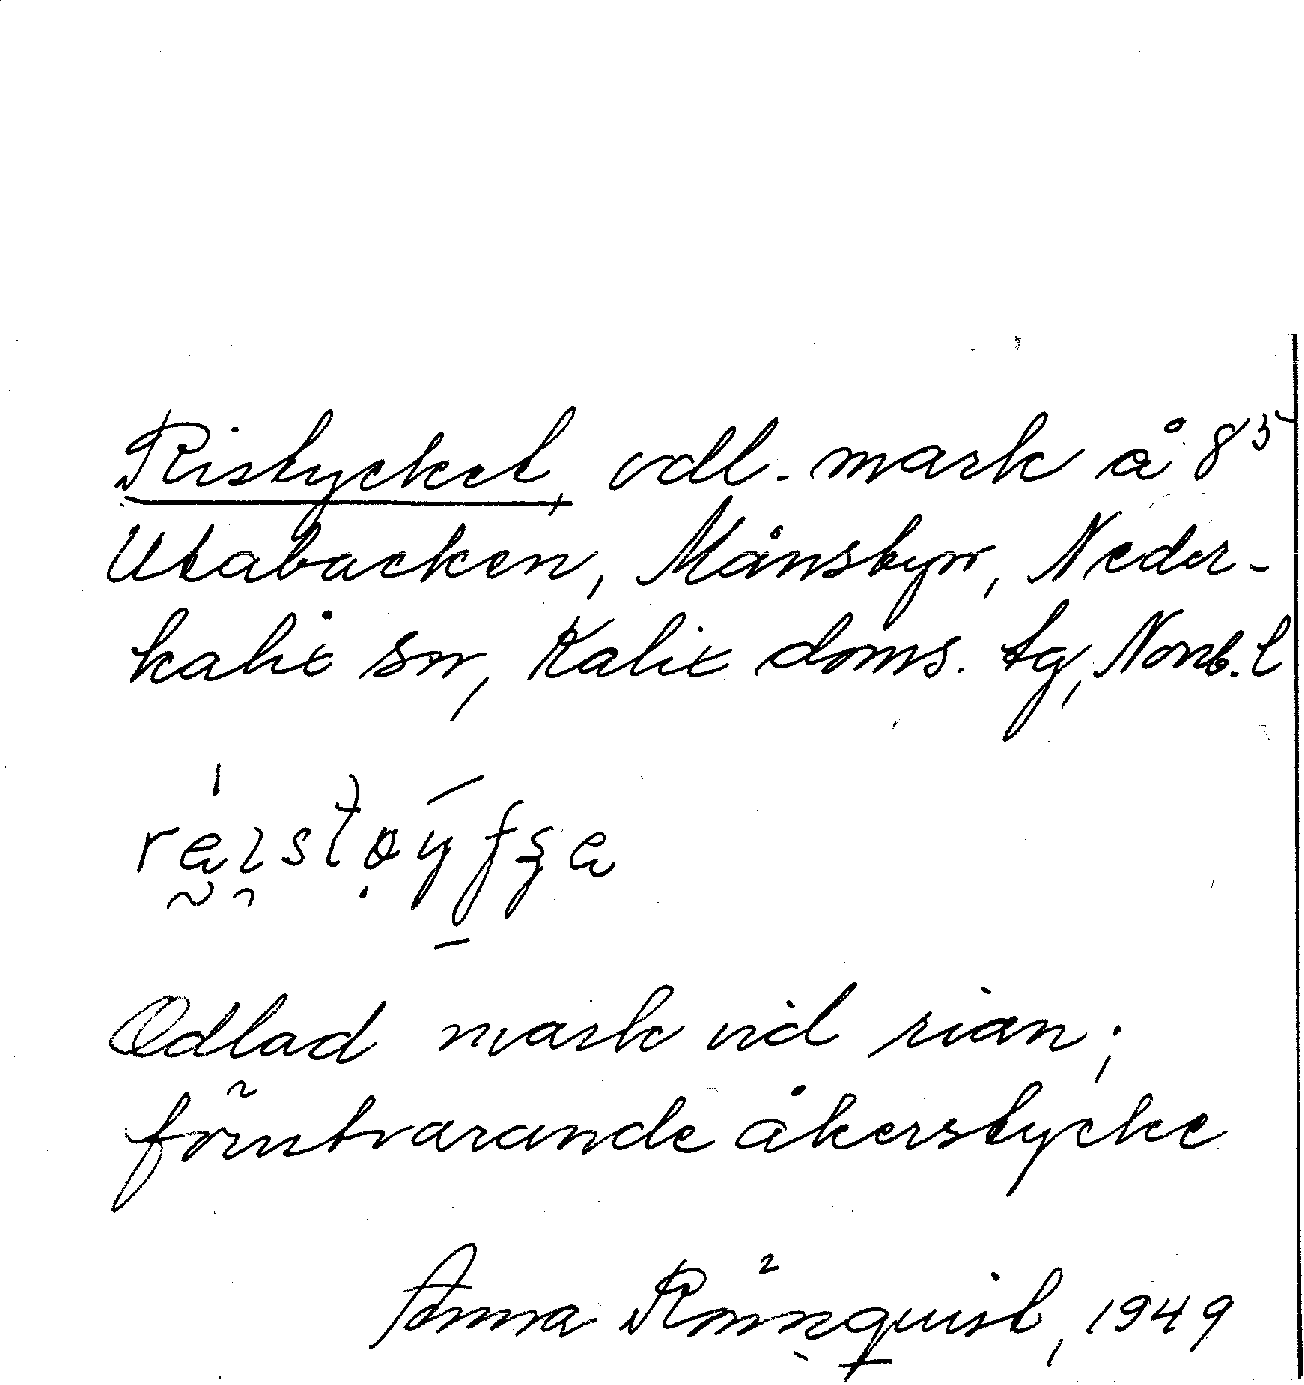 Ristycket, odl. mark å 8⁵
Utabacken, Månsbyn, Neder-
kalix sn, Kalix doms. tg, Norrb. l
Odlad mark vid rian;
förutvarande åkerstycke
Anna Rönnquist, 1949